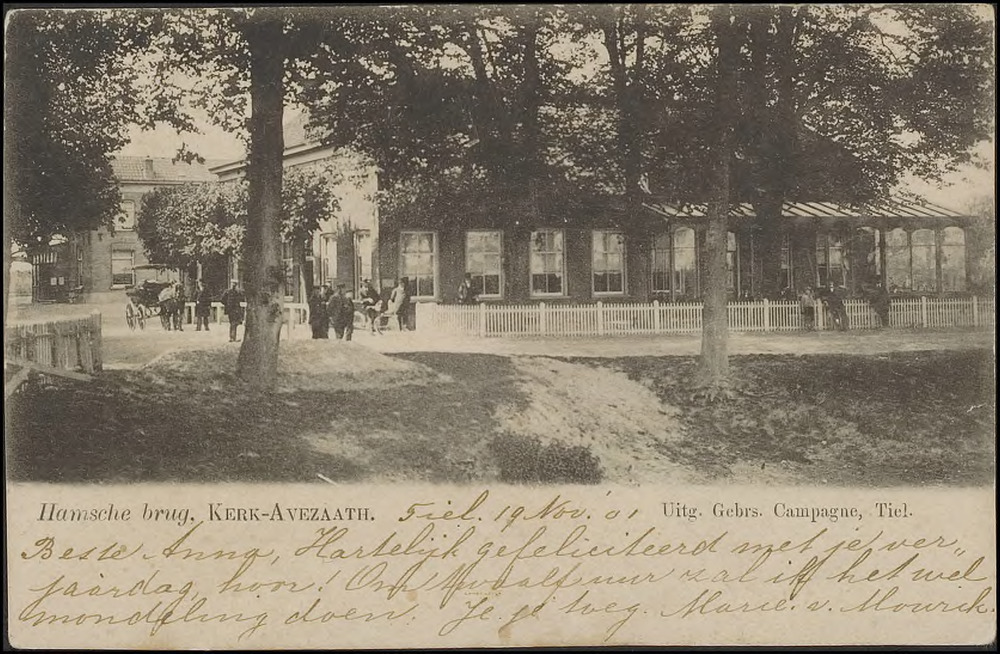 Hamsche brug, KERK-AVEZAATH. Tiel. 19 Nov. '01 Uitg. Gebrs. Campagne, Tiel.
Beste Anna, Hartelijk gefeliciteerd met je ver„
jaardag, hoor! Om twaalf uur zal ik het wel
mondeling doen. Je je Marie v. Mourik.